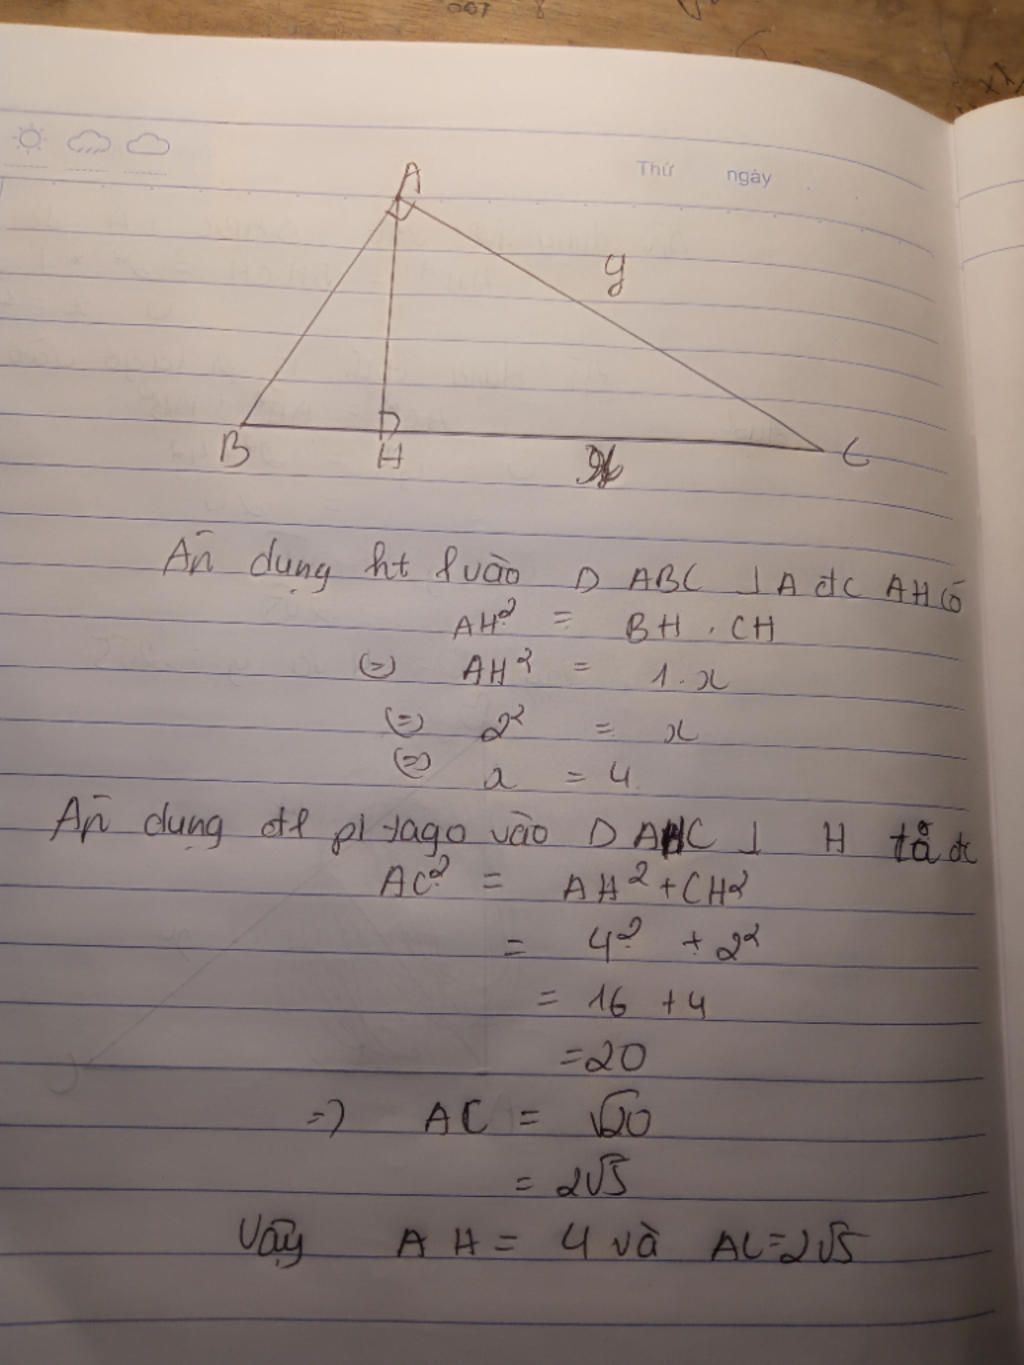 Thứ ngày
A
y
B H x C
Áp dụng ht lvào D ABC ⊥ A đc AH có
AH² = BH . CH
(=) AH² = 1.x
(=) 2² = x
(=) x = 4
Áp dụng đl pi tago vào D AHC ⊥ H ta đc
AC² = AH² + CH²
= 4² + 2²
= 16 + 4
= 20
=) AC = √20
= 2√5
Vậy AH = 4 và AC = 2√5